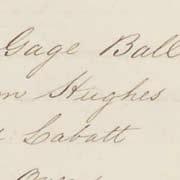 Gage Ball
Hughes
Labatt